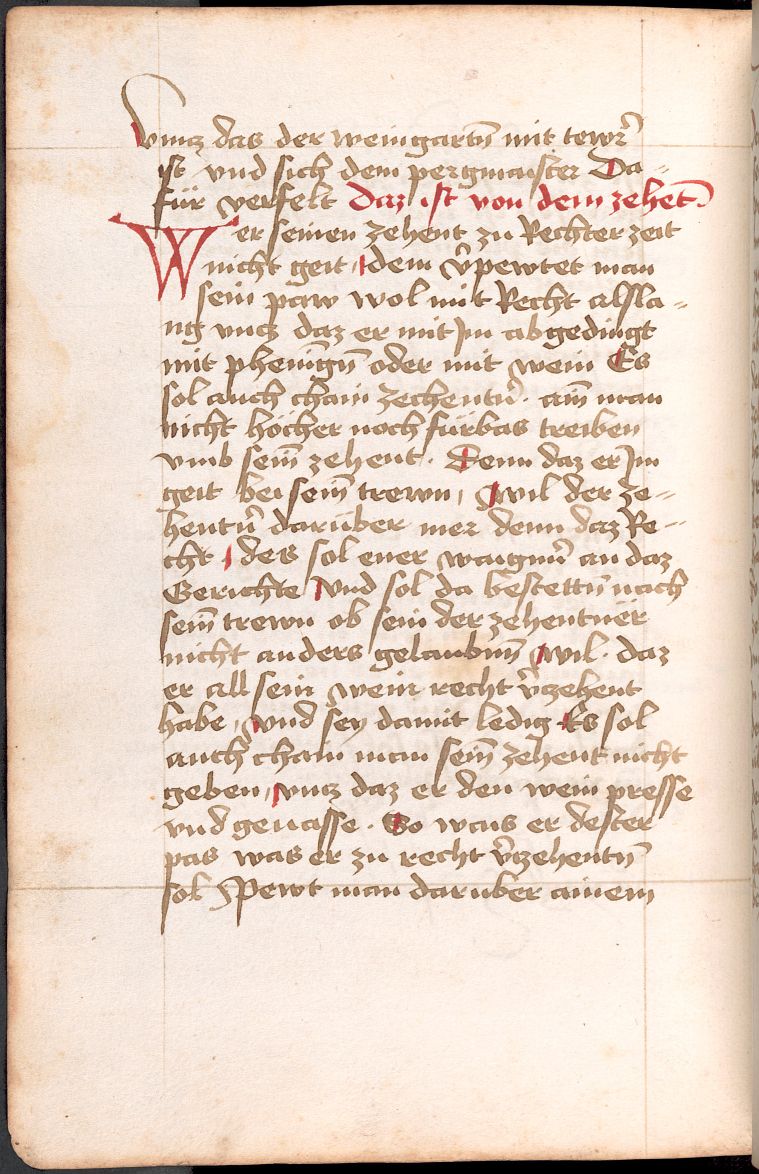 Vncz das der weingartñ mit tewr̃
ist vnd sich dem pergmaister Da-
für verfelt Daz ist von dem zehet̃
Wer seinen zehent zu Rechter zeit
nicht geit, dem v̾pewtet man
sein paw wol mit Recht alssla-
ng vncz daz er mit Jm abgedingt
mit phenīgñ oder mit wein Es
sol auch chain zechentn̾. ain̄ man
nicht höcher noch fürbas treiben
vmb sein̄ zehent. Denn daz er Jm
geit bei sein̄ trewn, Wil der ze-
hentn̾ darüber mer denn daz Re-
cht, des sol ener waign̄ an daz
Gerichte Vnd sol da bestettn̄ nach
sein̄ trewn ob sein der zehentnër
nicht anders gelaubm̄ wil. daz
er all sein wein recht v̾zehent
habe, vnd sey damit ledig Es sol
auch chain man sein̄ zehent nicht
geben, vncz daz er den wein presse
vnd geuasse. So wais er dester
pas was er zu recht v̾zehentn̄
sol Spewt man daruber ainem